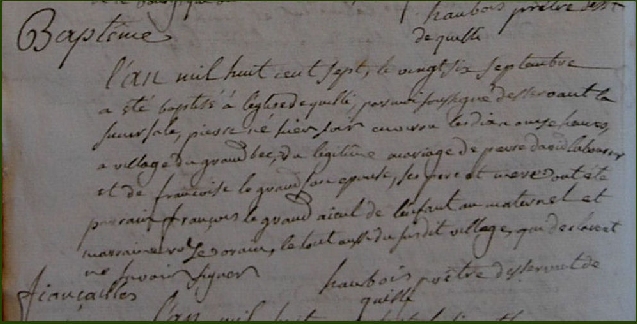 haubois prêtre dess
de quilly
Baptême
l'an mil huit cent sept, le vingt six septembre
a été baptisé à l'église de quilli, par moi soussigné desservant la
sucursale, pierre né hier soir environ les dix a onze heures,
a village du grand bec, du légitime mariage de pierre david laboureur
et de françoise le grand son epouse, ses pere et mere ont été
parrain françois le grand aieul de l'enfant au maternel et
marraine Lorain, le tout aussi du susdit village, qui déclarent
ne savoir signer
haubois prêtre desservant de
quilli
fiançailles
l'an mil huit